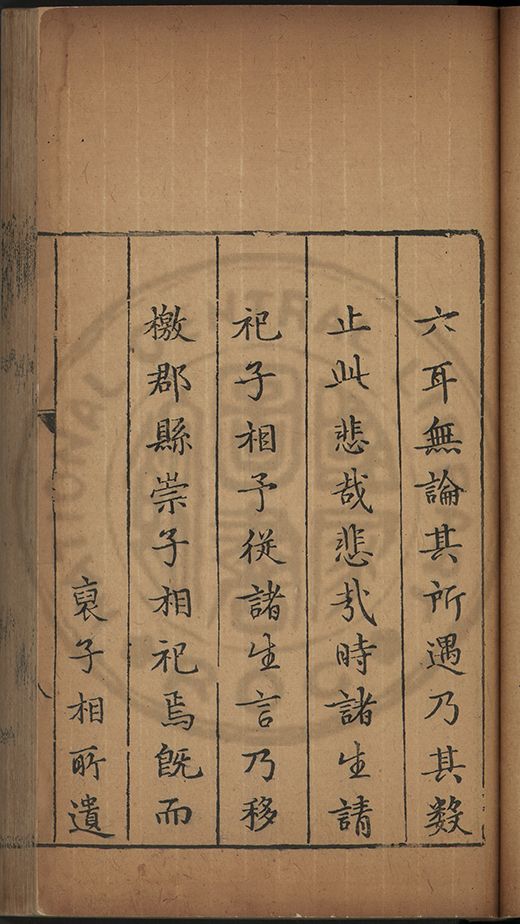 六耳無論其所遇乃其数
止此悲哉悲哉時諸生請
祀子相予從諸生言乃移
檄郡縣崇子相祀焉既而
裒子相所遺